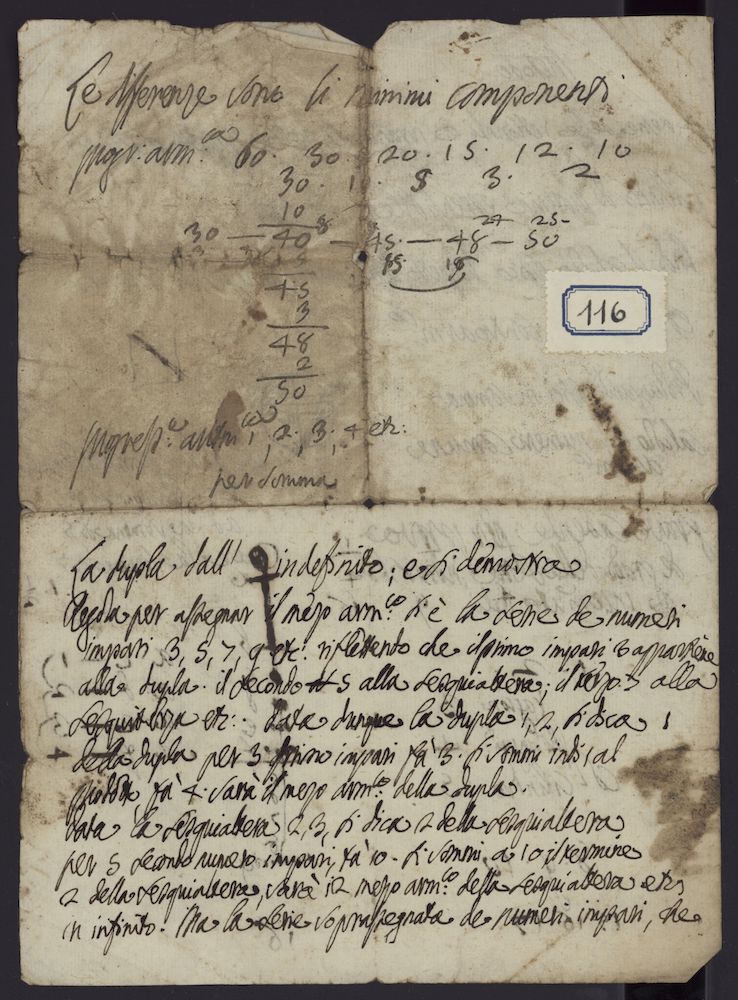 Le differenze sono li minimi componenti
progr: arm:ca 60. 30. 20. 15. 12. 10
30. 1 3. 2
10
30 — 40 — 45. — 48 — 50
24 25
15
45
3
48
2
50
116
progress:e aritm:ca 1, 2, 3, 4 etc:
per somma
La dupla dall' indefinito; e si demostra
Regola per assegnar il mezo arm:co si è la serie de numeri
impari 3, 5, 7, 9 etc: riflettendo che il primo impari 3 appartiene
alla dupla. il secondo 5 alla sesquialtera; il terzo 7 alla
sesquiterza etc: data dunque la dupla 1, 2, si dica 1
della dupla per 3 primo impari fà 3. si sommi indi 1 al
fà 4. sarà il mezo arm:co della dupla.
Data la sesquialtera 2, 3, si dica 2 della sesquialtera
per 5 secondo numero impari, fà 10. si sommi a 10 il termine
2 della sesquialtera, sarà 12 mezo arm:co della sesquialtera etc:
in infinito. Ma la serie soprassegnata de numeri impari, che